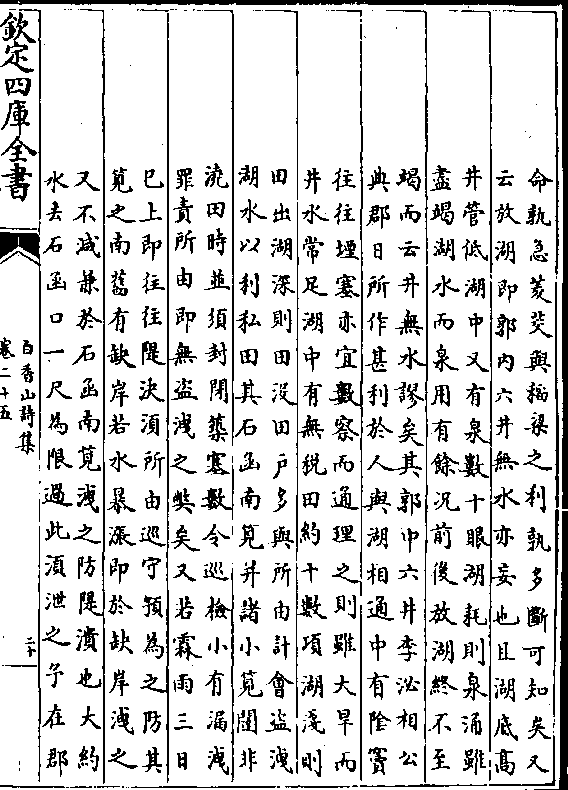 命孰急菱茭與稻梁之利孰多斷可知矣又
云放湖即郭内六井無水亦妄也且湖底高
井管低湖中又有泉數十眼湖耗則泉涌雖
盡竭湖水而泉用有餘况前後放湖終不至
竭而云井無水謬矣其郭中六井李泌相公
典郡日所作甚利於人與湖相通中有陰竇
往往堙塞亦宜數察而通理之則雖大旱而
井水常足湖中有無税田約十數頃湖淺則
田出湖深則田没田户多與所由計會盜洩
湖水以利私田其石函南筧并諸小筧闥非
澆田時並須封閉築塞數令巡檢小有漏洩
罪責所由即無盜洩之弊矣又若霖雨三日
已上即往往隄決須所由巡守預為之防其
筧之南舊有缺岸若水暴漲即於缺岸洩之
又不減兼於石函南筧洩之防隄潰也大約
水去石函口一尺為限過此須泄之予在郡
欽定四庫全書
白香山詩集
卷二十五
二十